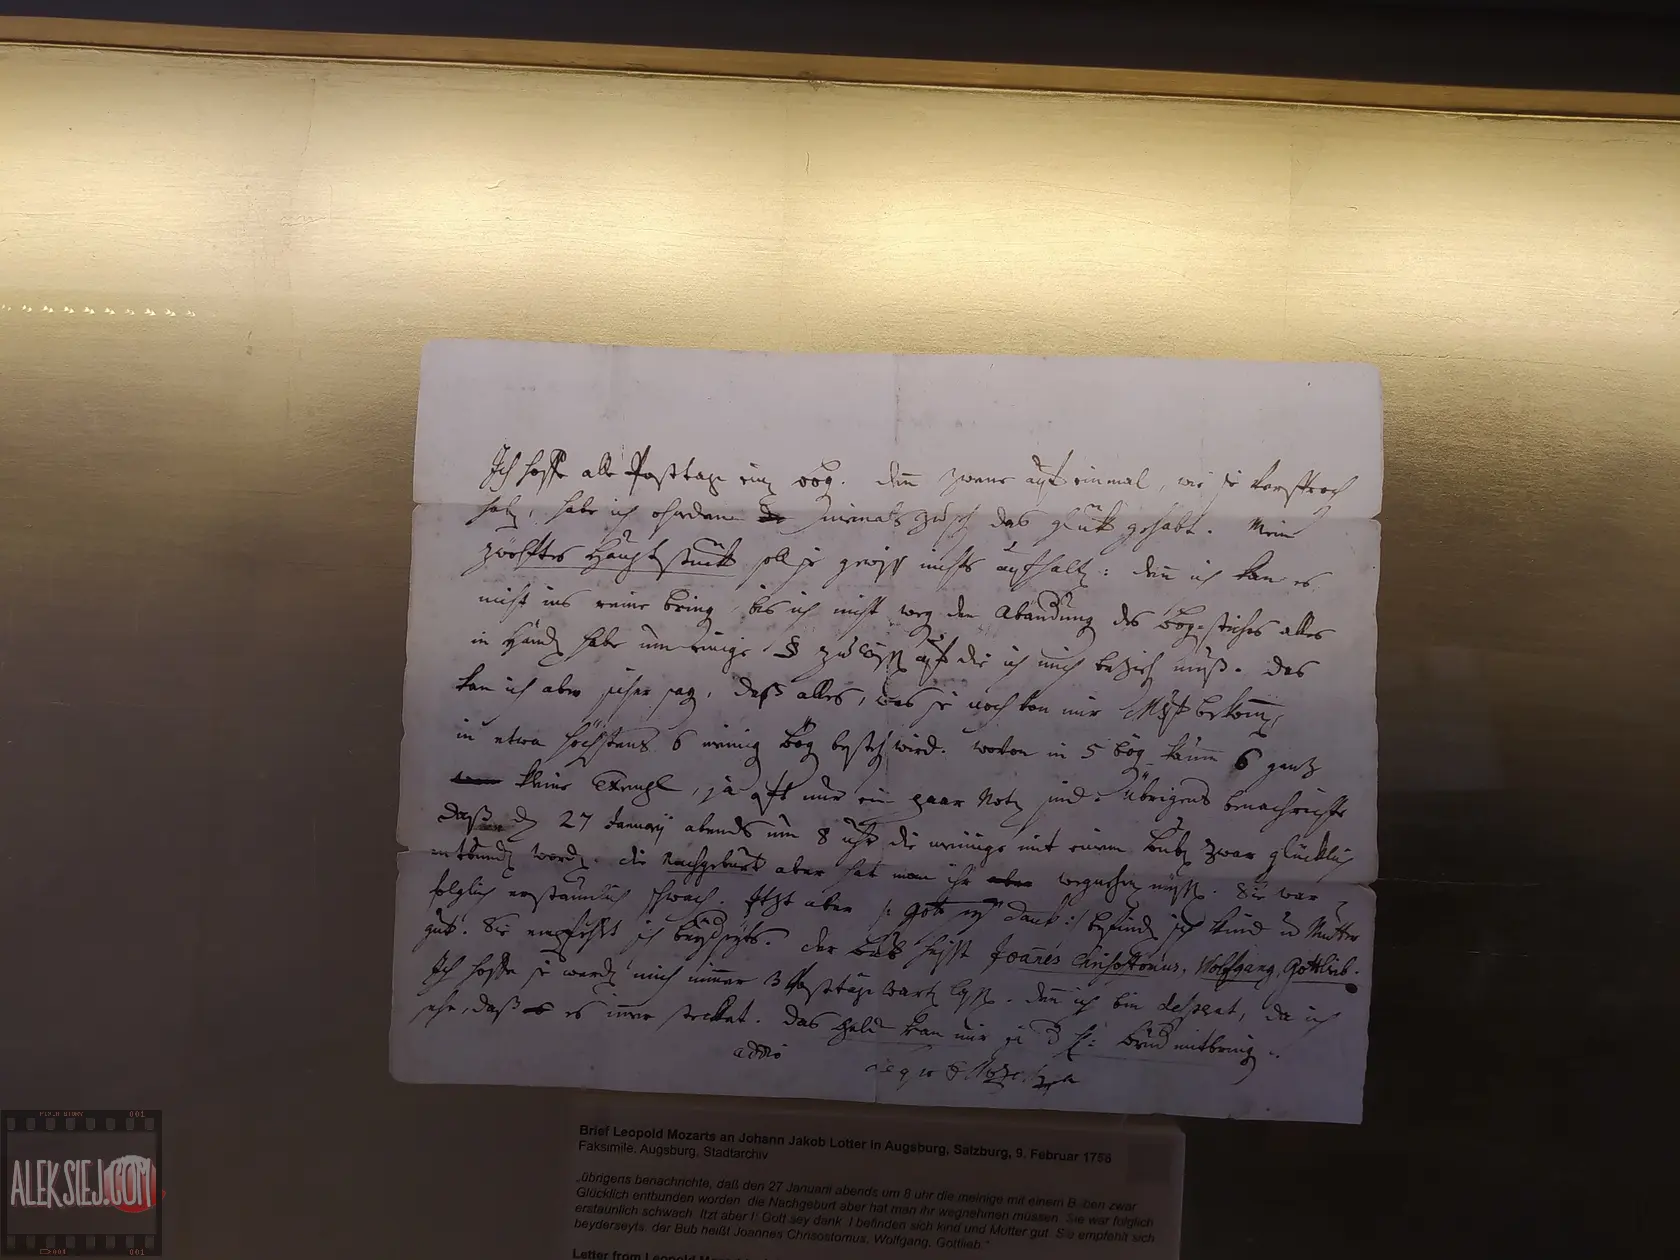 Ich hoffe alle Posttage ein Bög. denn zweene auf einmal, wie sie versproch
hab, habe ich ohnedem niemals das glück gehabt. Mein
zwölftes Hauptstück soll sie gewiß nichts aufhalt: denn ich kan es
nicht ins reine bring, bis ich nicht weg den Abänderung des alles
in Händ habe um einige § auf die ich mich bezieh muß. Das
kan ich aber sicher sag, daß alles, was sie noch von mir bekom,
in etwa höchstens 6 wenig Bög besteh wird. wovon in 5 bög kaum 6 gantz
kleine Exempl, ja oft nur ein paar Not sind. übrigens benachrichte
daß d 27 Januarij abends um 8 uhr die meinige mit einem Bub zwar glücklich
entbund word. die Nachgeburt aber hat man ihr wegnehm müss. Sie war
folglich erstaunlich schwach. Itzt aber /: gott sey dank :/ befind sich kind und Mutter
gut. Sie empfehlt sich beydseyts. der Bub heißt Joannes Chrisostomus, Wolfgang, Gottlieb.
Ich hoffe sie werd mich nimmer 3 Posttäge wart lass. denn ich bin desperat, da ich
sehe, daß es imer stecket. Das Geld kan mir ja mitbring
addio
Brief Leopold Mozarts an Johann Jakob Lotter in Augsburg, Salzburg, 9. Februar 1756
Faksimile, Augsburg, Stadtarchiv
„übrigens benachrichte, daß den 27 Januarii abends um 8 uhr die meinige mit einem B..ben zwar
Glücklich entbunden worden. die Nachgeburt aber hat man ihr wegnehmen müssen. Sie war folglich
erstaunlich schwach. Itzt aber /: Gott sey dank :/ befinden sich kind und Mutter gut. Sie empfehlt sich
beyderseyts. der Bub heißt Joannes Chrisostomus, Wolfgang, Gottlieb."
Letter from Leopold
ALEKSIEJ.COM